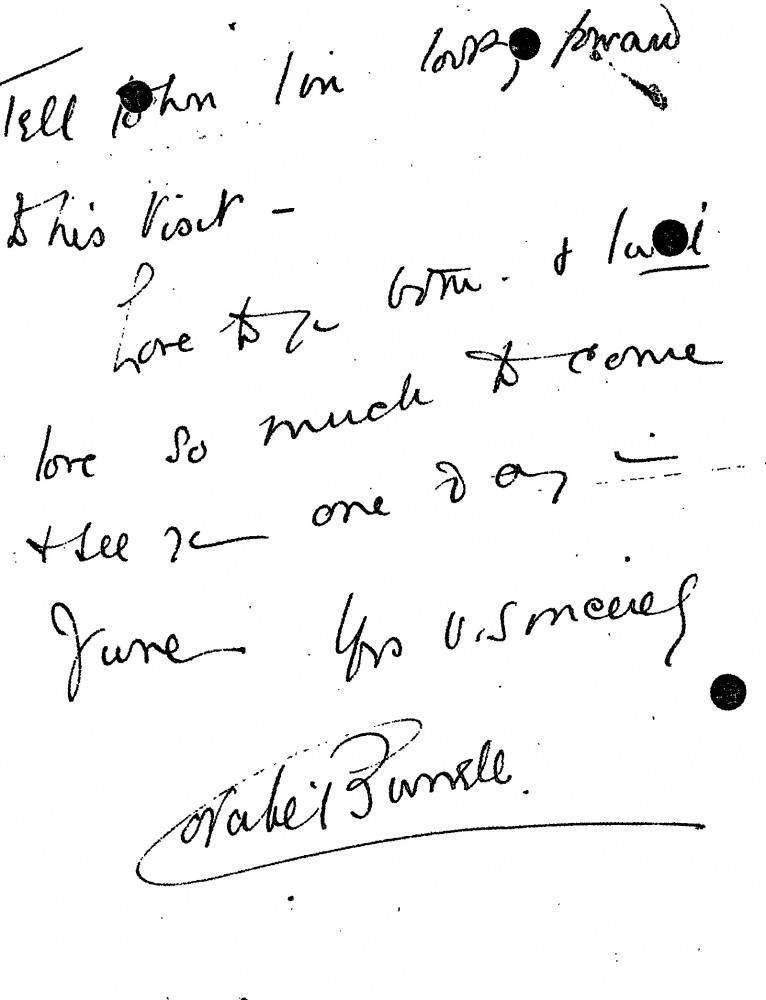 Tell John I'm lookg forward
to his visit -
Love to you both. & I
love so much to come
& see you one day in
June Yrs v. sincerely